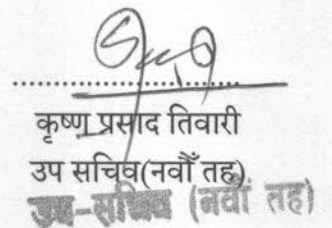 कृष्ण प्रसाद तिवारी
उप सचिव(नवौँ तह)
उप-सचिव (नवौं तह)